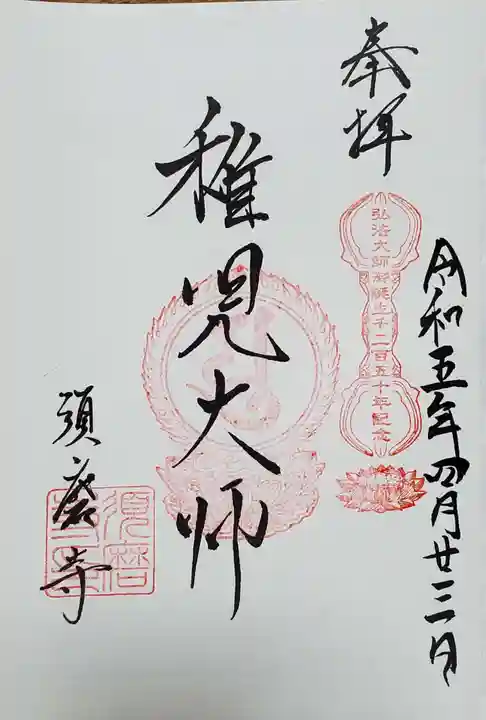 奉拝
弘法大師御誕生千二百五十年記念
令和五年四月廿三日
稚児大师
須磨寺
須磨寺